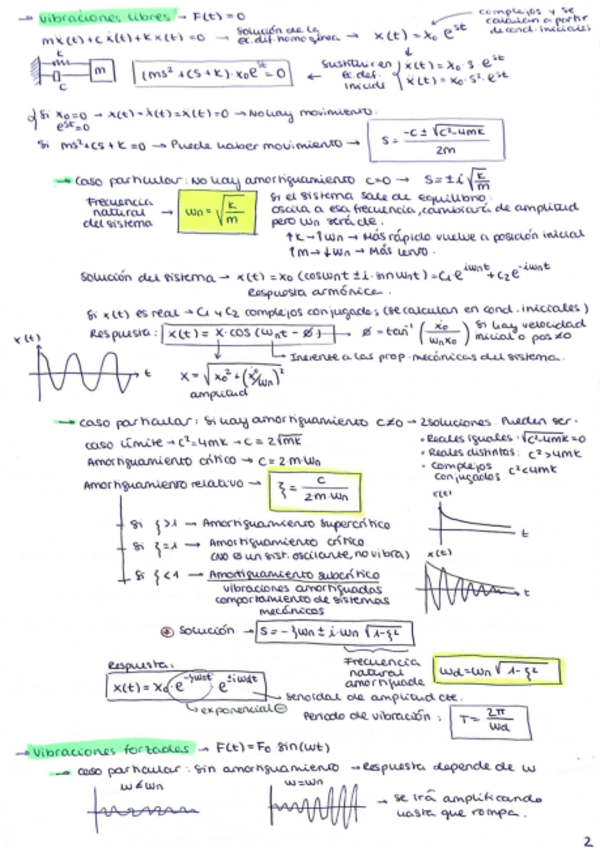 → vibraciones libres → F(t)=0
mẍ(t)+cẋ(t)+kx(t)=0 → solución de la ec.dif.homogénea → x(t)=x₀e^st
complejos y se calculan a partir de cond. iniciales
k
c
m
(ms²+cs+k)·x₀e^st=0 ← Sustituir en ec.def. inicial
ẋ(t)=x₀·s·e^st
ẍ(t)=x₀·s²·e^st
Si x₀=0 → x(t)=ẋ(t)=ẍ(t)=0 → No hay movimiento.
e^st=0
Si ms²+cs+k=0 → Puede haber movimiento → S = (-c±√(c²-4mk))/2m
→ caso particular: No hay amortiguamiento c=0 → S=±i√(k/m)
Frecuencia natural del sistema → ωn=√(k/m)
Si el sistema sale de equilibrio oscila a esa frecuencia, cambiará de amplitud pero ωn será cte.
↑k→↑ωn → Más rápido vuelve a posición inicial
↑m→↓ωn → Más lento.
Solución del sistema → x(t)=x₀(cosωnt±i·sinωnt)=C₁e^iωnt+C₂e^-iωnt
Respuesta armónica.
Si x(t) es real → C₁ y C₂ complejos conjugados (se calculan en cond. iniciales)
Respuesta: x(t)=X·cos(ωnt-ø) → ø=tan⁻¹(ẋ₀/ωnx₀) Si hay velocidad inicial o pos≠0
Inherente a las prop. mecánicas del sistema.
x(t)
t
X=√(x₀²+(ẋ₀/ωn)²)
amplitud
→ caso particular: Si hay amortiguamiento c≠0 → 2 soluciones. Pueden ser:
caso límite → c²=4mk → c=2√mk
• Reales iguales: √(c²-4mk)=0
Amortiguamiento crítico → c=2m·ωn
• Reales distintas: c²>4mk
• complejos conjugados c²<4mk
Amortiguamiento relativo → ξ=c/(2m·ωn)
x(t)
t
Si ξ>1 → Amortiguamiento supercrítico
Si ξ=1 → Amortiguamiento crítico
(no es un sist. oscilante, no vibra)
x(t)
t
Si ξ<1 → Amortiguamiento subcrítico
vibraciones amortiguadas
comportamiento de sistemas mecánicos
⊕ Solución → S=-ξωn±i·ωn√(1-ξ²)
Frecuencia natural amortiguada
ωd=ωn√(1-ξ²)
Respuesta:
x(t)=x₀·e^-ξωnt·e^±iωdt
→ senoidal de amplitud cte.
→ exponencial ⊖
Periodo de vibración: T=2π/ωd
→ vibraciones forzadas → F(t)=F₀ sin(ωt)
→ caso particular: Sin amortiguamiento → Respuesta depende de ω
ω≠ωn
ω=ωn
→ se irá amplificando hasta que rompa.
2